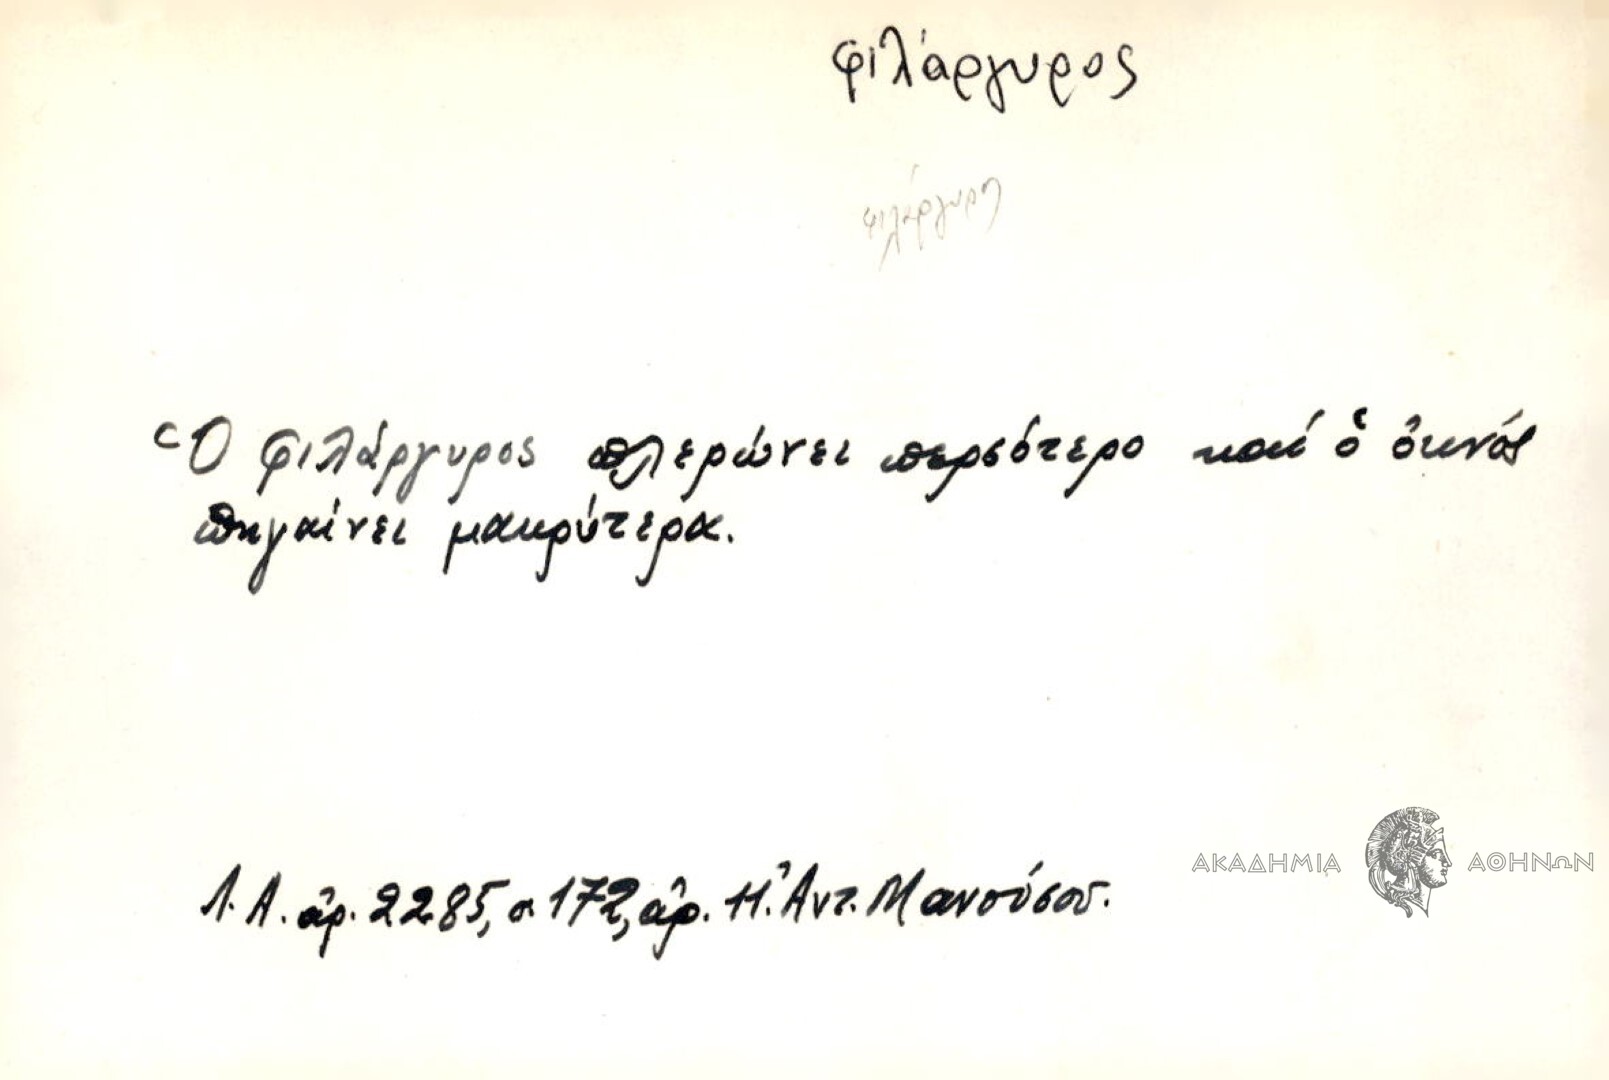 φιλάργυρος
φιλάργυρη
Ὁ φιλάργυρος πλερώνει περσότερο καί ὁ ὀκνός
πηγαίνει μακρύτερα.
Λ.Α. ἀρ. 2285, σ 172, ἀρ. 11. Ἀντ. Μανούσου.
ΑΚΑΔΗΜΙΑ ΑΘΗΝΩΝ